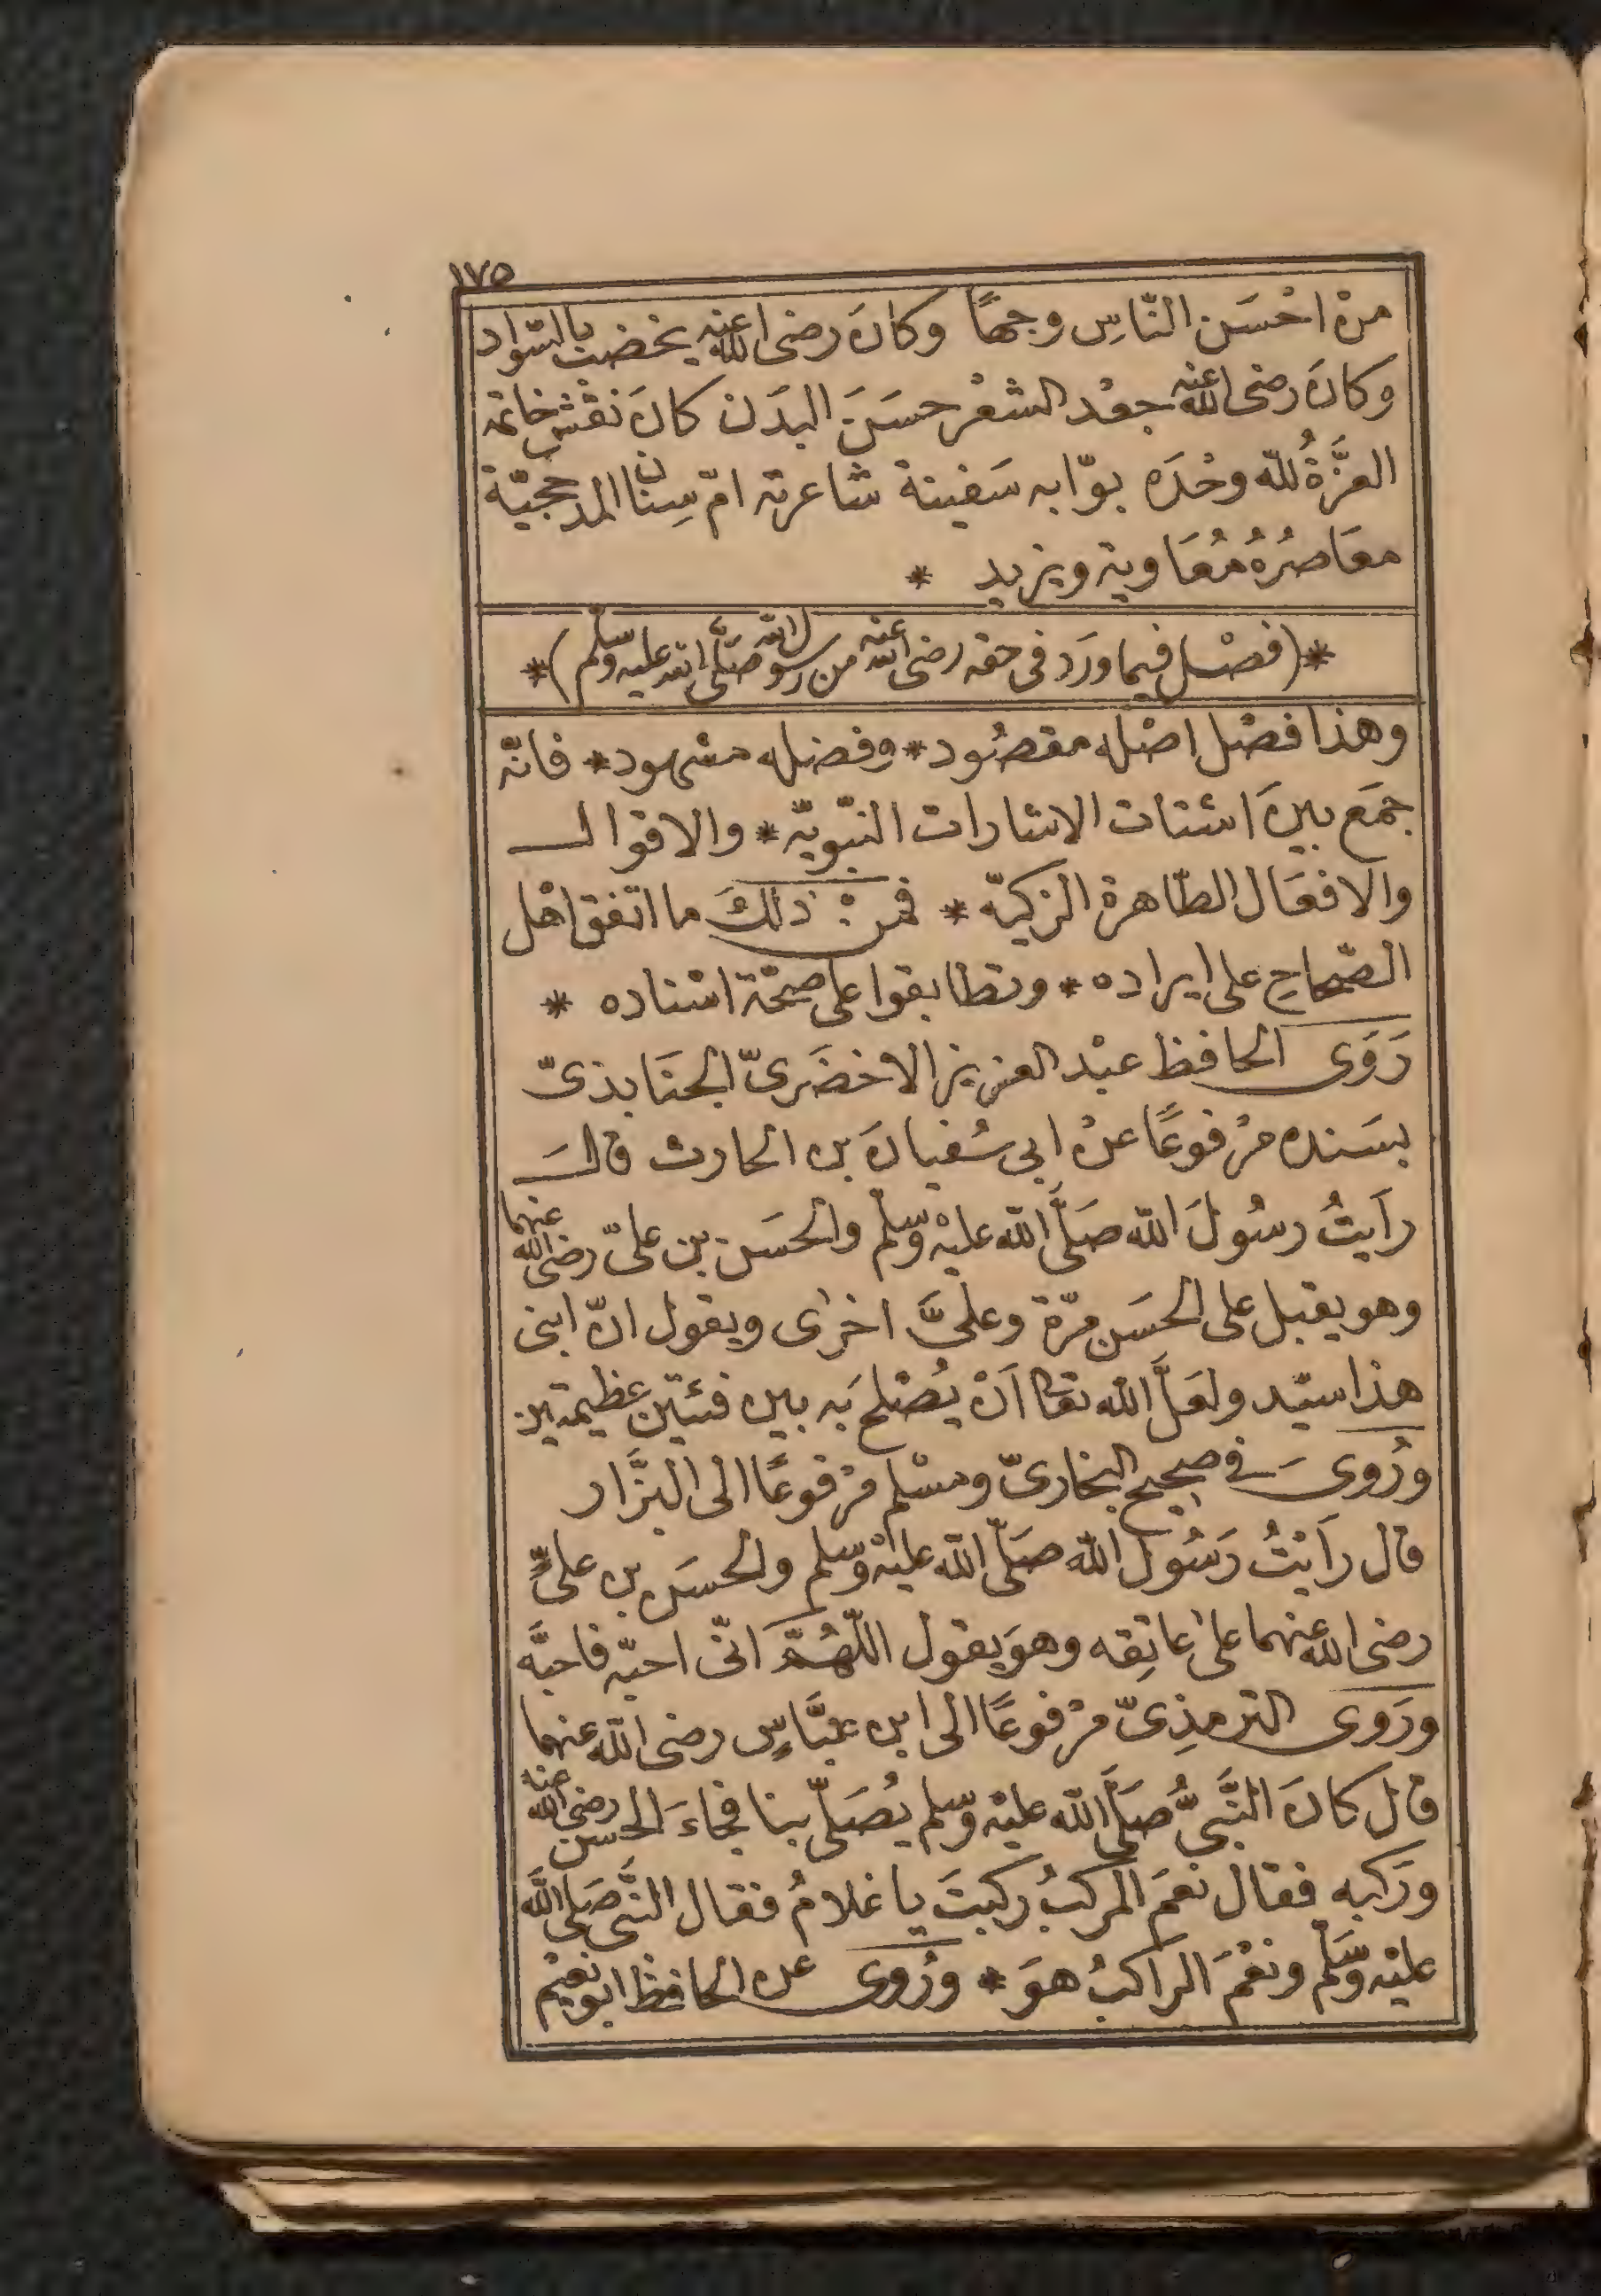 ١٧٥
منْ احْسَن النّاسِ وجهًا وكانَ رضى الله عنه يخضب بالسّواد
وكانَ رضى الله عنه جعْد الشعْر حسَنَ البدَن كانَ نقْش خاتمه
العزَّةُ للّه وحْدَه بوّابه سَفينة شاعرته امّ سِنان المدحجيّة
معَاصرُهُ مُعَاوية ويزيد *
*(فصْل فيما ورَد فى حقه رضى الله عنه من رسول الله صَلَّى الله عليه وسلم)*
وهذا فصْل اصْله مقصُود * وفضله مشهود * فانّه
جمَع بينَ اشتات الاشارات النّبويّه * والاقوال
والافعَال الطّاهرة الزكيّه * فمنْ ذلكَ ما اتفق اهْل
الصّحاح على ايراده * وتطابقوا على صحّة اسْناده *
رَوَى الحافظ عبْد العزيز الاخضَرىّ الجنَابذىّ
بسَنده مرْفوعًا عنْ ابى سُفيانَ بن الحارث قالَ
رَأيتُ رسُولَ اللّه صَلَّى اللّه عليْه وسلّم والحسَن بن علىّ رضى الله عنهما
وهو يقبل على الحسَن مرّة وعلىَّ اخرٰى ويقول انّ ابنى
هذا سيّد ولعَلَّ اللّه تعَا اَنْ يُصْلح بَه بين فئتين عظيمتين
ورُوىَ فى صحيح البخارىّ ومسْلم مرْفوعًا الى البزَّار
قال رَاَيْتُ رَسُول اللّه صَلّى اللّه عليْه وسلم والحسَن بن علىٍّ
رضى الله عنهما علىٰ عاتِقه وهوَ يقول اللّهُمَّ انّى احبّه فاحبَّه
ورَوى الترمذِىّ مرْفوعًا الى ابن عبَّاسٍ رضى اللّه عنهما
قال كانَ النَّبىُّ صَلَّى اللّه عليْه وسّلم يُصَلّى بنا فجاءَ الحسن رضى الله عنه
ورَكبه فقال نعمَ المركبُ ركبتَ يا غلامُ فقال النَّبى صَلى اللَّه
عليْه وسَلّم ونعْمَ الراكبُ هوَ * ورُوى عن الحافظ ابو نعيْم